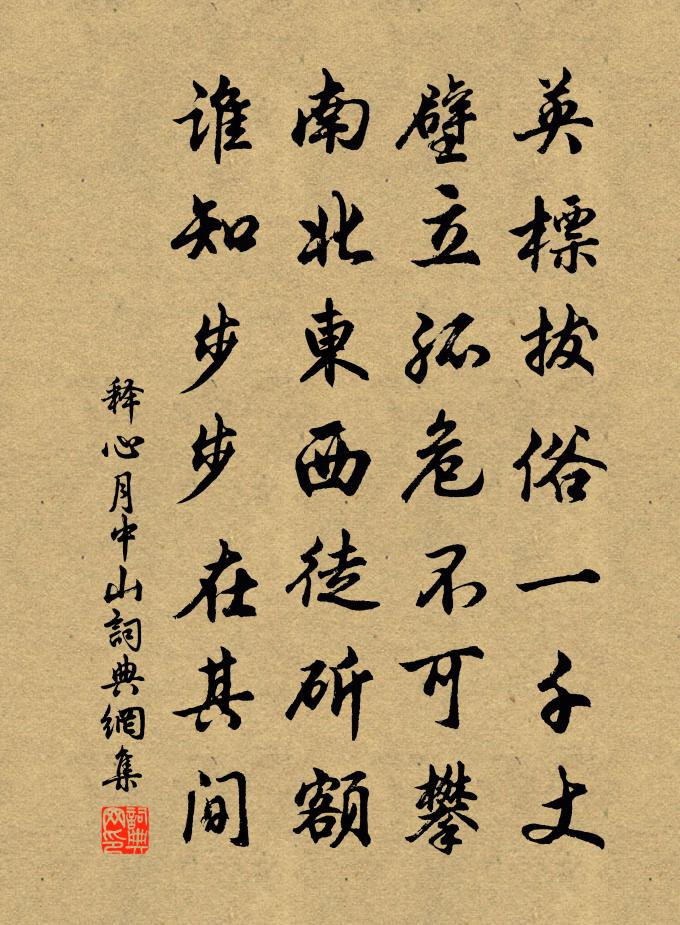 英標拔俗一千丈
壁立孤危不可攀
南北東西徒斫額
誰知步步在其间
释心月中山詞典網集
詞典網印